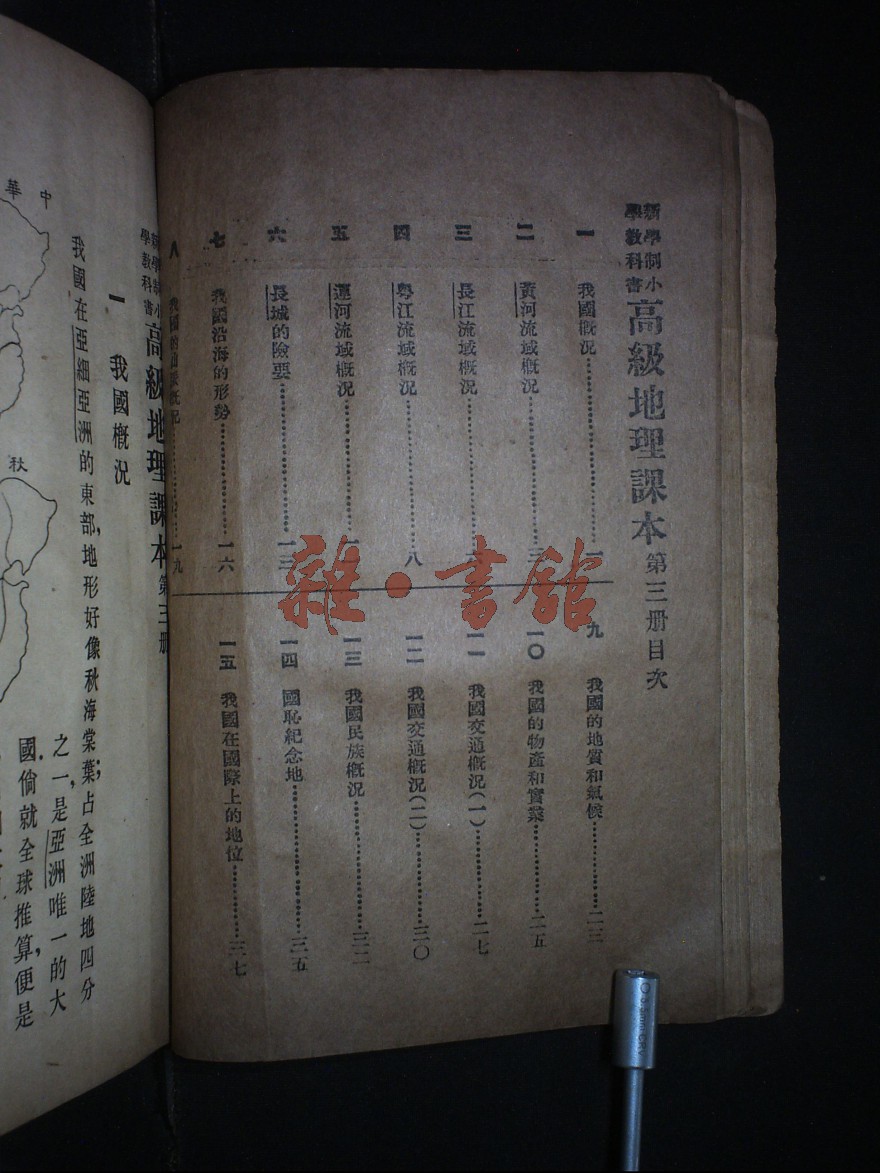 新學制小學教科書高級地理課本第三册目次
一 我國概況……一
二 黃河流域概況……三
三 長江流域概況……六
四 粵江流域概況……八
五 運河流域概況……一
六 長城的險要……一三
七 我國沿海的形勢……一六
八 我國的……概況……一九
九 我國的地質和氣候……二三
一〇 我國的物產和實業……二五
一一 我國交通概況(一)……二七
一二 我國交通概況(二)……三〇
一三 我國民族概況……三二
一四 國恥紀念地……三五
一五 我國在國際上的地位……三七
新學制小學教科書高級地理課本第三册
一 我國概況
我國在亞細亞洲的東部,地形好像秋海棠葉;占全洲陸地四分
之一,是亞洲唯一的大
國。倘就全球推算,便是
中華
秋
雜·書館
0.5mm CRV